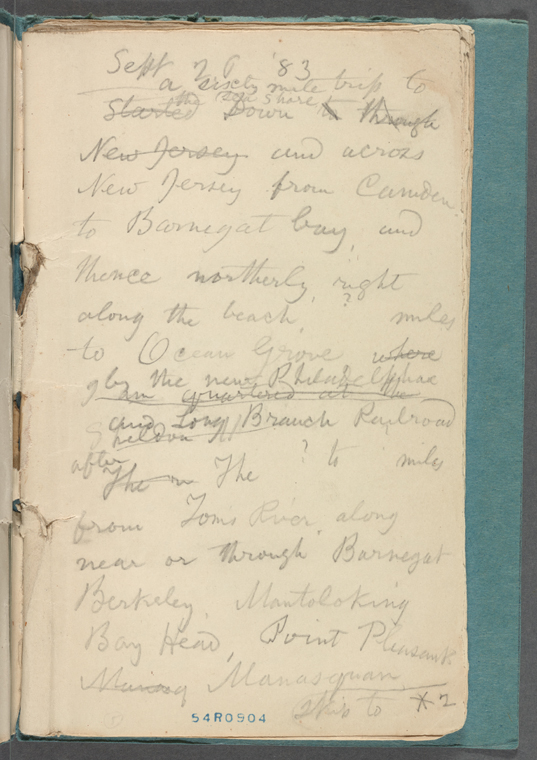 Sept 26 '83
a sixty mile trip to
the sea shore
Started Down to through
New Jersey and across
New Jersey from Camden
to Barnegat bay, and
thence northerly, right
along the beach, ? miles
to Ocean Grove where
by the new Philadelphia
I am quartered at the
and Long Branch Railroad
Sheldon
after
The The ? to miles
from Toms River along
near or through Barnegat
Berkeley Mantoloking
Bay Head, Point Pleasant
Manasquan
skip to * 2
54R0904